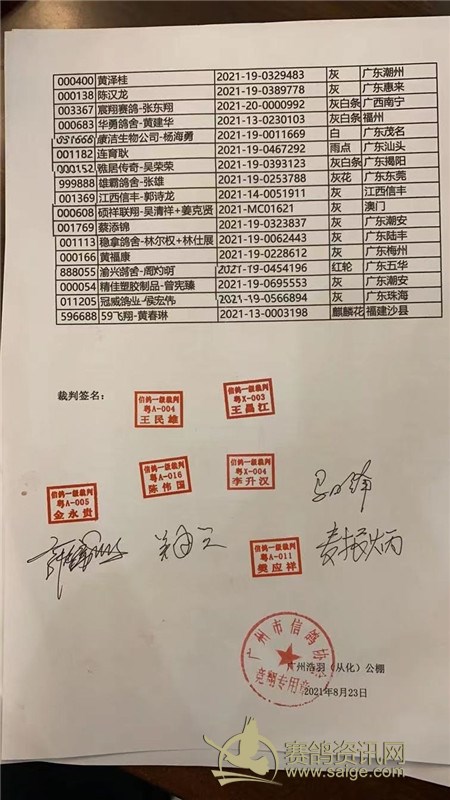 000400 黄泽桂 2021-19-0329483 灰 广东潮州
000138 陈汉龙 2021-19-0389778 灰 广东惠来
003367 宸翔赛鸽-张东翔 2021-20-0000992 灰白条 广西南宁
000683 华勇鸽舍-黄建华 2021-13-0230103 灰白条 福州
031666 康洁生物公司-杨海勇 2021-19-0011669 白 广东茂名
001182 连育耿 2021-19-0467292 雨点 广东汕头
000152 雅居传奇-吴荣荣 2021-19-0393123 灰白条 广东揭阳
999888 雄霸鸽舍-张雄 2021-19-0253788 灰花 广东东莞
001369 江西信丰-郭诗龙 2021-14-0051911 灰 江西信丰
000608 硕祥联翔-吴清祥+姜克贤 2021-MC01621 灰 澳门
001769 蔡添锦 2021-19-0323837 灰 广东潮安
001113 稳拿鸽舍-林尔权+林仕展 2021-19-0062443 灰 广东陆丰
000166 黄福康 2021-19-0228612 灰 广东梅州
888055 渝兴鸽舍-周灼明 2021-19-0454196 红轮 广东五华
000054 精佳塑胶制品-曾宪臻 2021-19-0695553 灰 广东潮安
011205 冠威鸽业-侯宏伟 2021-19-0566894 灰 广东珠海
596688 59飞翔-黄春琳 2021-13-0003198 麒麟花 福建沙县
裁判签名：
信鸽一级裁判
粤A-004
王民雄
信鸽一级裁判
粤X-003
王昌江
信鸽一级裁判
粤A-005
金永贵
信鸽一级裁判
粤A-016
陈伟国
信鸽一级裁判
粤X-004
李升汉
信鸽一级裁判
粤A-011
樊应祥
麦振炳
广州市信鸽协会
竞翔专用章
广州浩羽（从化）公棚
2021年8月23日
赛鸽资讯网
www.saige.com